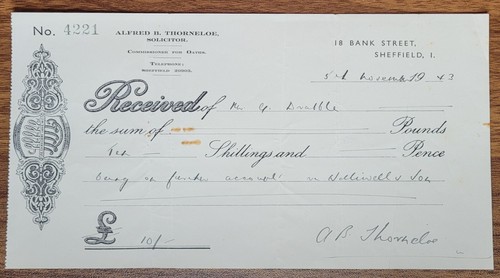 No. 4221
ALFRED B. THORNELOE,
SOLICITOR.
COMMISSIONER FOR OATHS.
TELEPHONE:
SHEFFIELD
18 BANK STREET,
SHEFFIELD, 1.
5th November 19 43
Received of Mr G Drabble
the sum of Pounds
Ten Shillings and Pence
being on further account Helliwell & Son
£ 10/-
A B Thorneloe